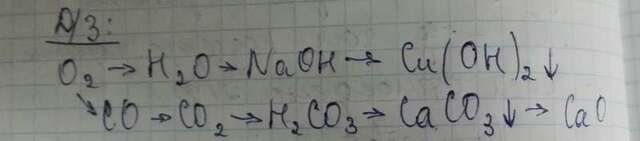 Д/З:
O₂ → H₂O → NaOH → Cu(OH)₂↓
↘CO → CO₂ → H₂CO₃ → CaCO₃↓ → CaO